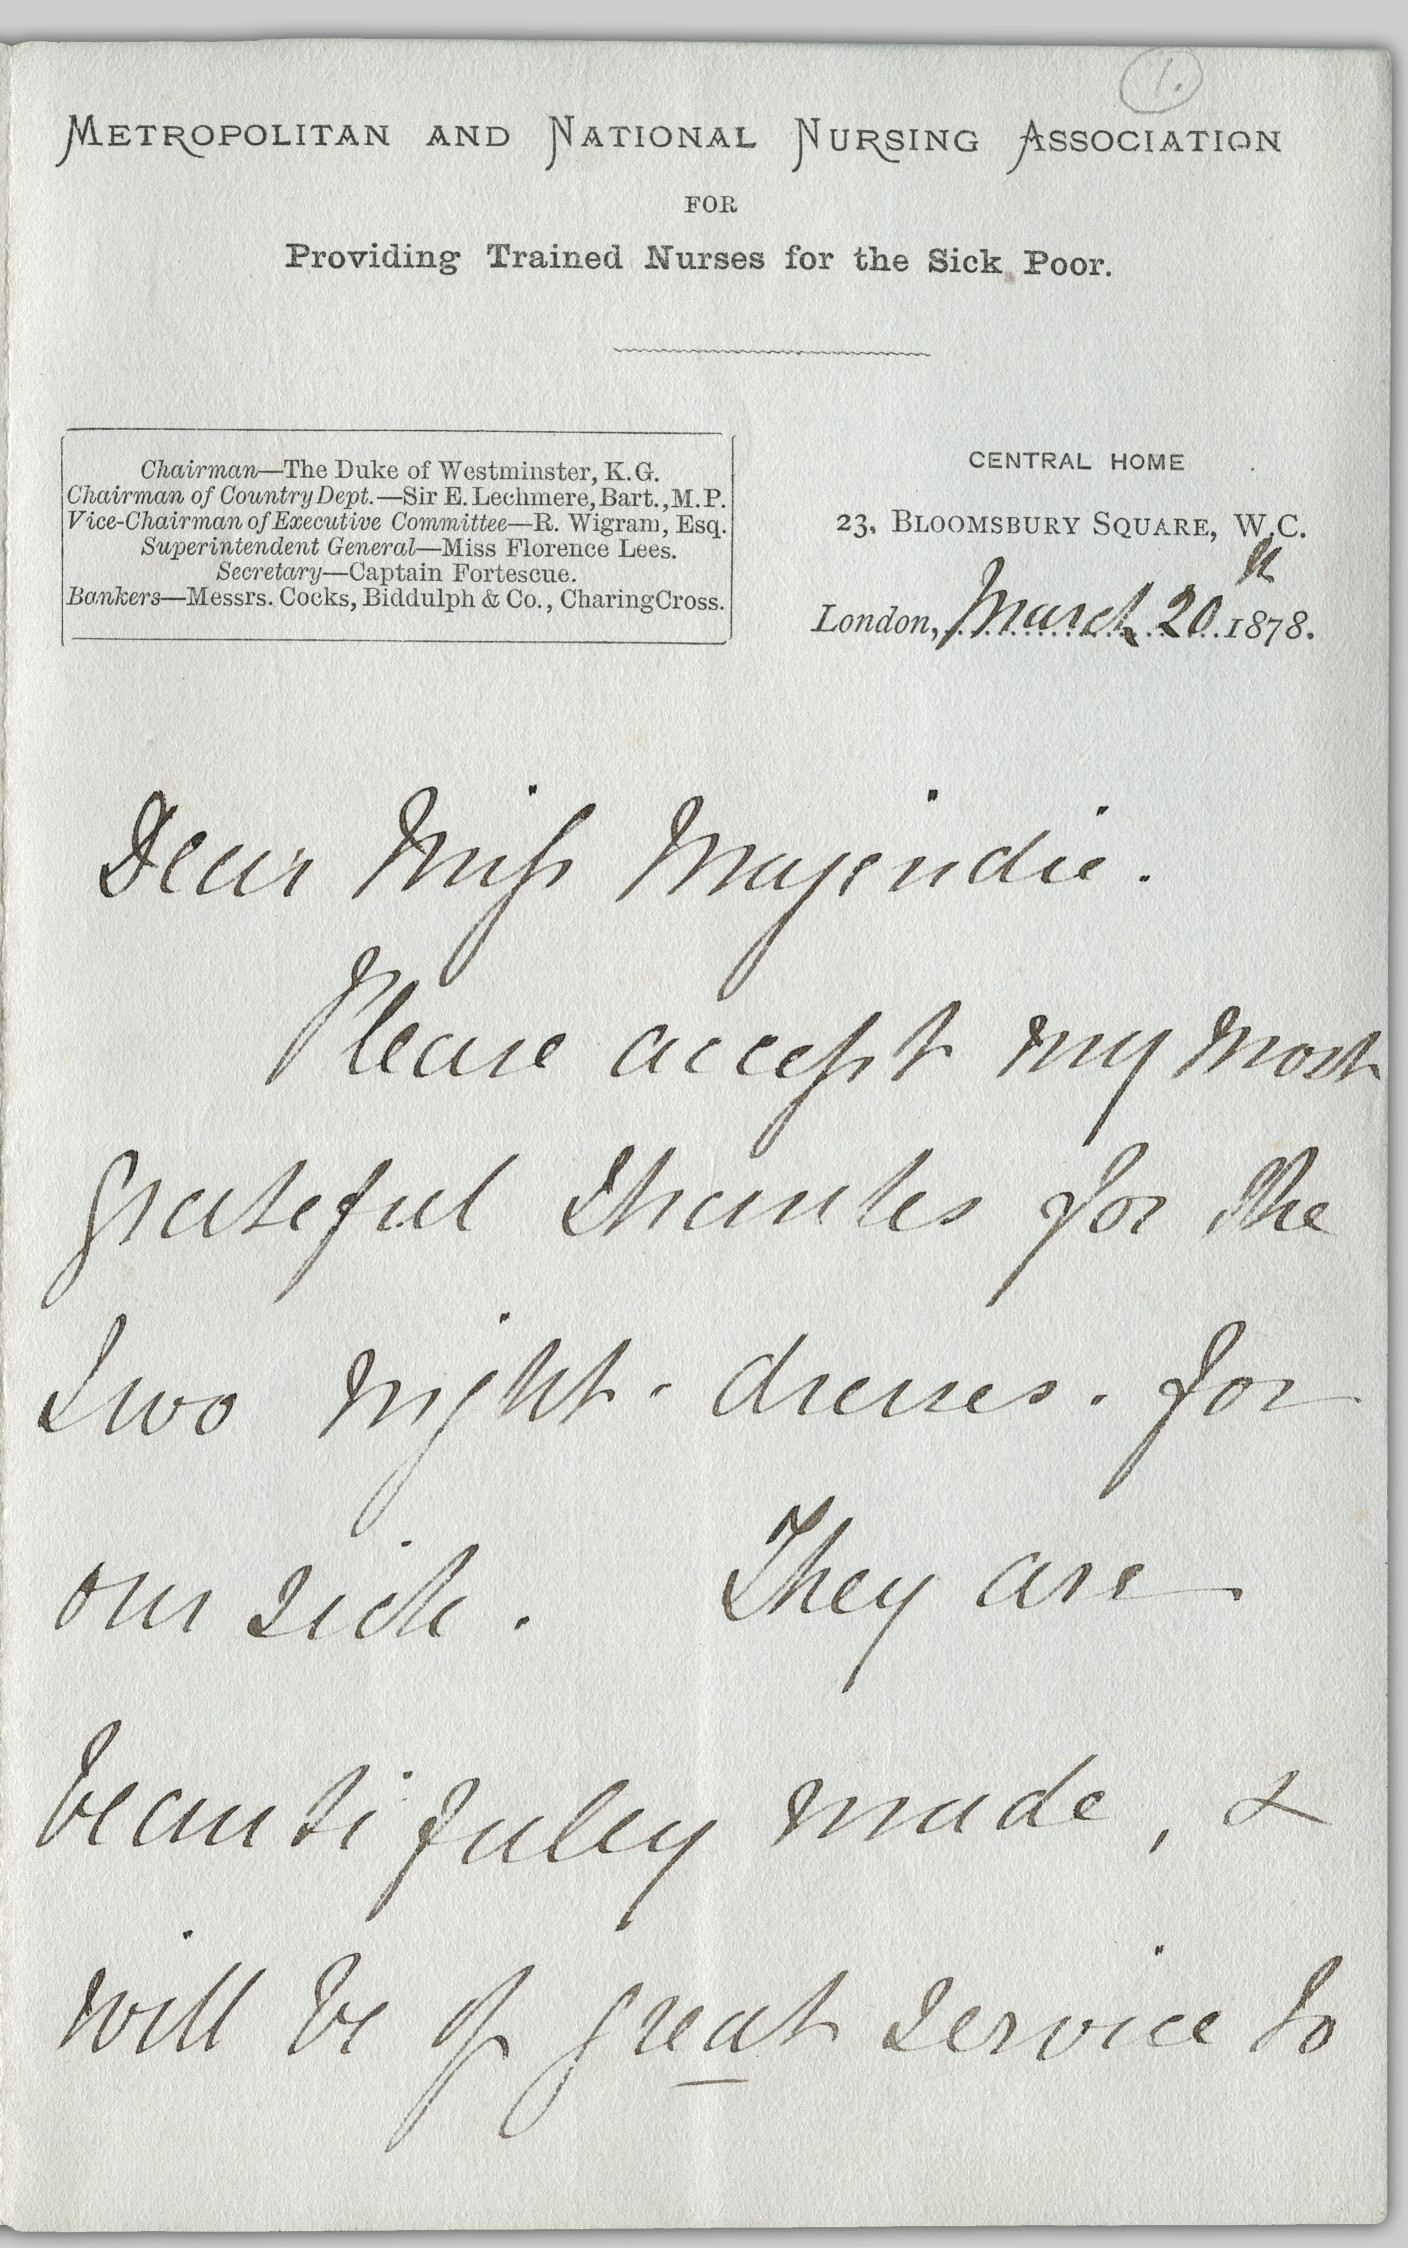 1.
METROPOLITAN AND NATIONAL NURSING ASSOCIATION
FOR
Providing Trained Nurses for the Sick Poor.
Chairman—The Duke of Westminster, K.G.
Chairman of Country Dept.—Sir E. Lechmere, Bart., M.P.
Vice-Chairman of Executive Committee—R. Wigram, Esq.
Superintendent General—Miss Florence Lees.
Secretary—Captain Fortescue.
Bankers—Messrs. Cocks, Biddulph & Co., Charing Cross.
CENTRAL HOME
23, BLOOMSBURY SQUARE, W.C.
London, March 20th 1878.
Dear Miss Majendie.
Please accept my most
grateful thanks for the
two night-dresses. for
our sick. They are
beautifully made, &
will be of great service to